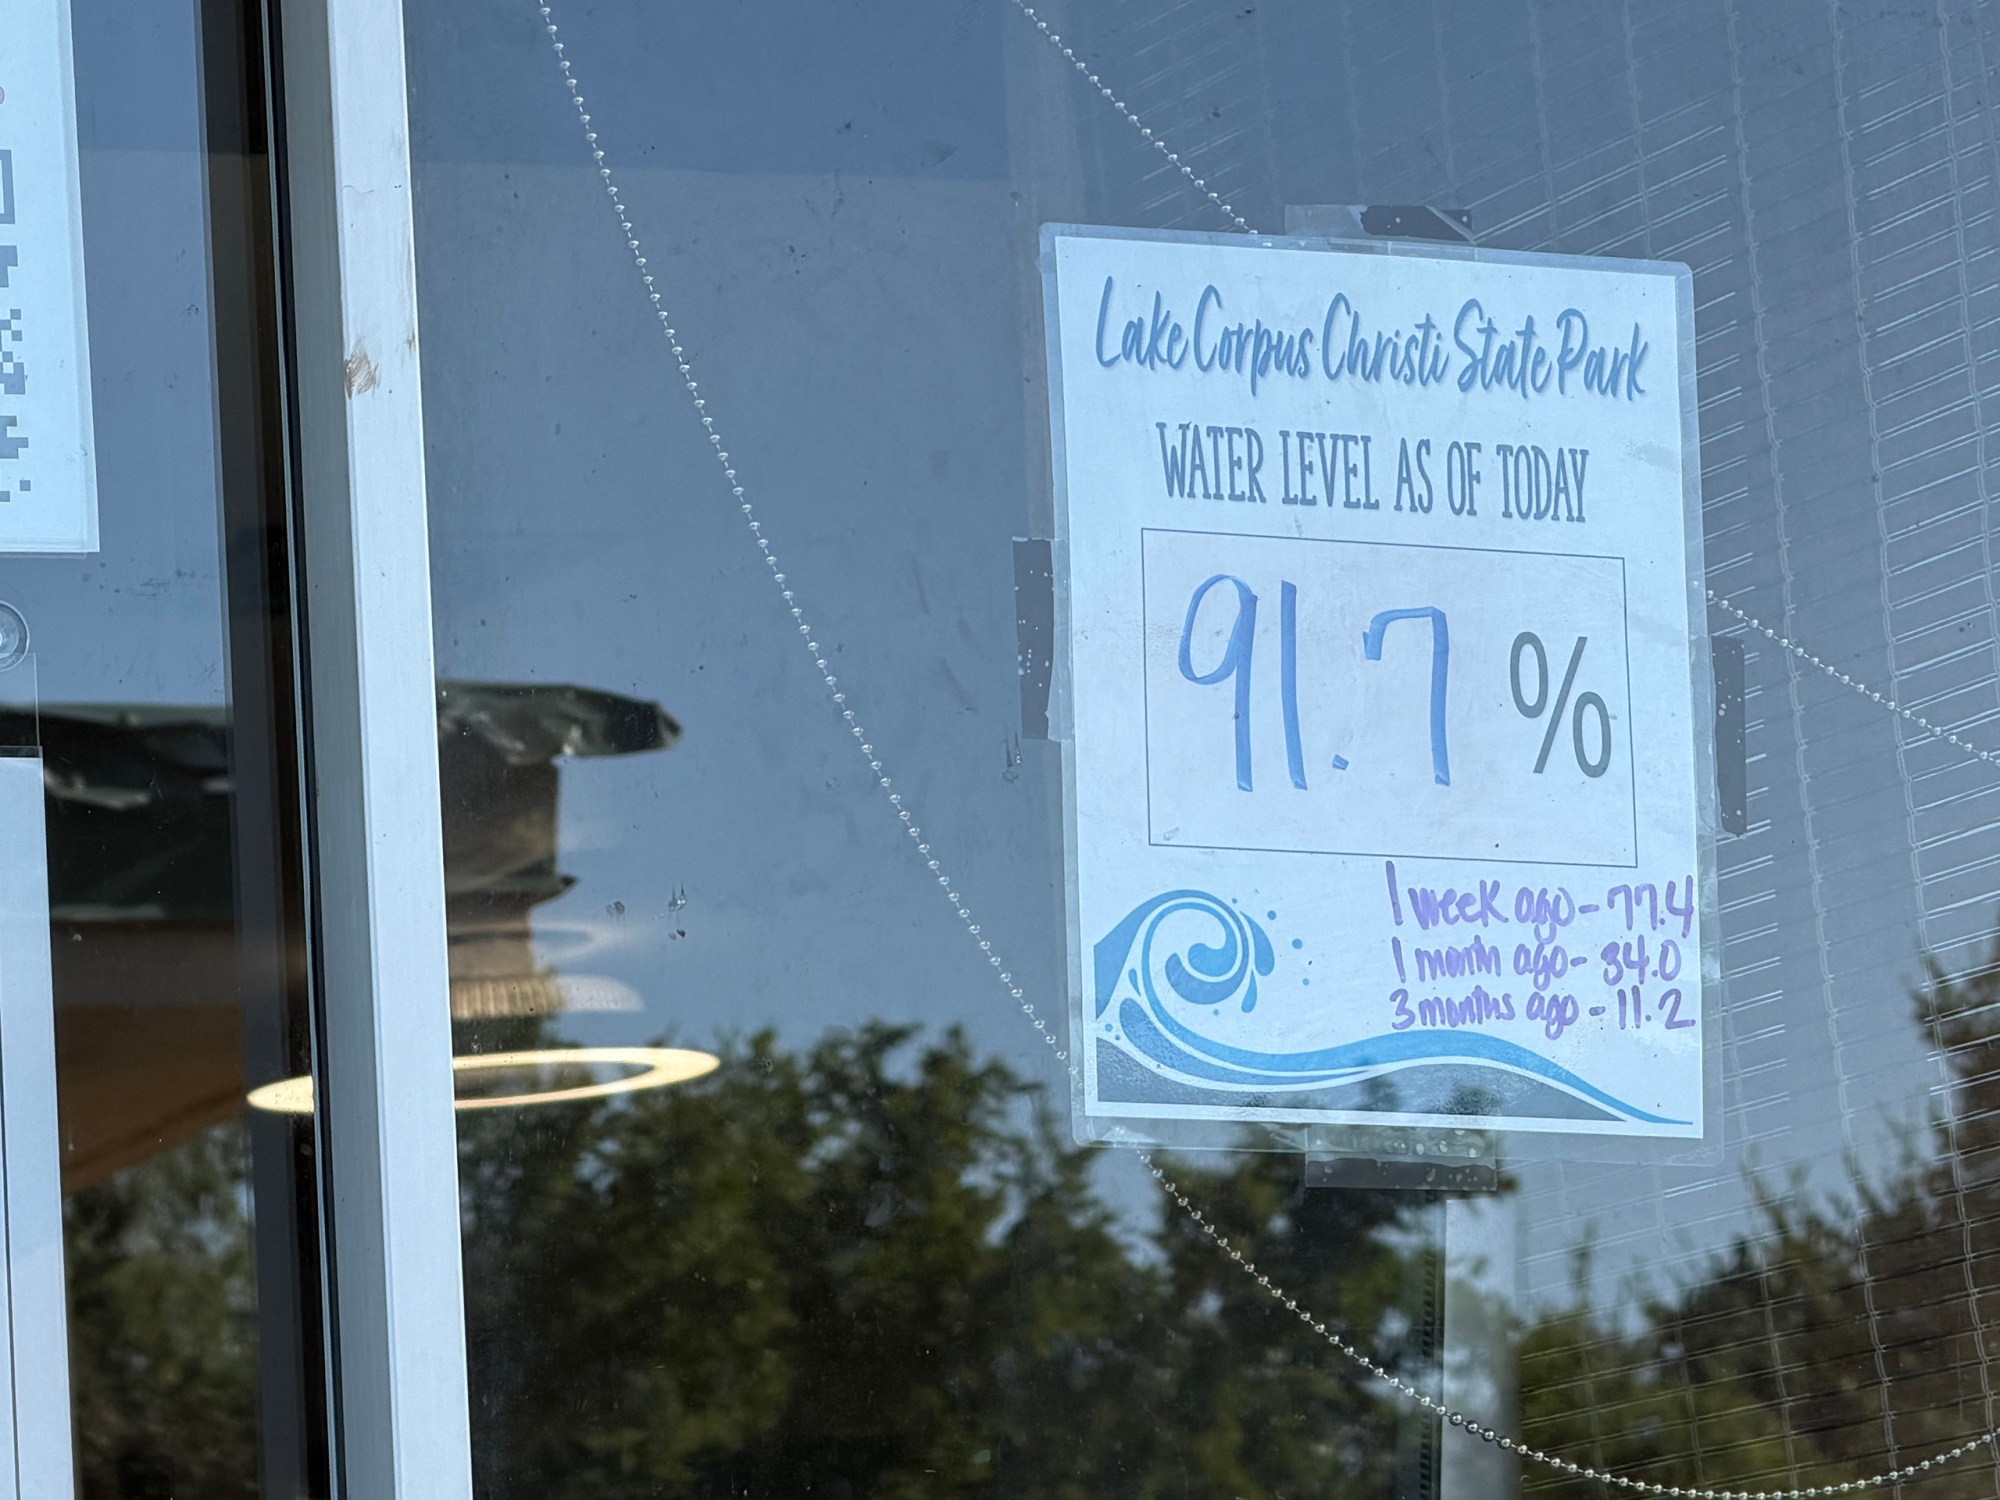 Lake Corpus Christi State Park
WATER LEVEL AS OF TODAY
91.7 %
1 week ago - 77.4
1 month ago - 34.0
3 months ago - 11.2